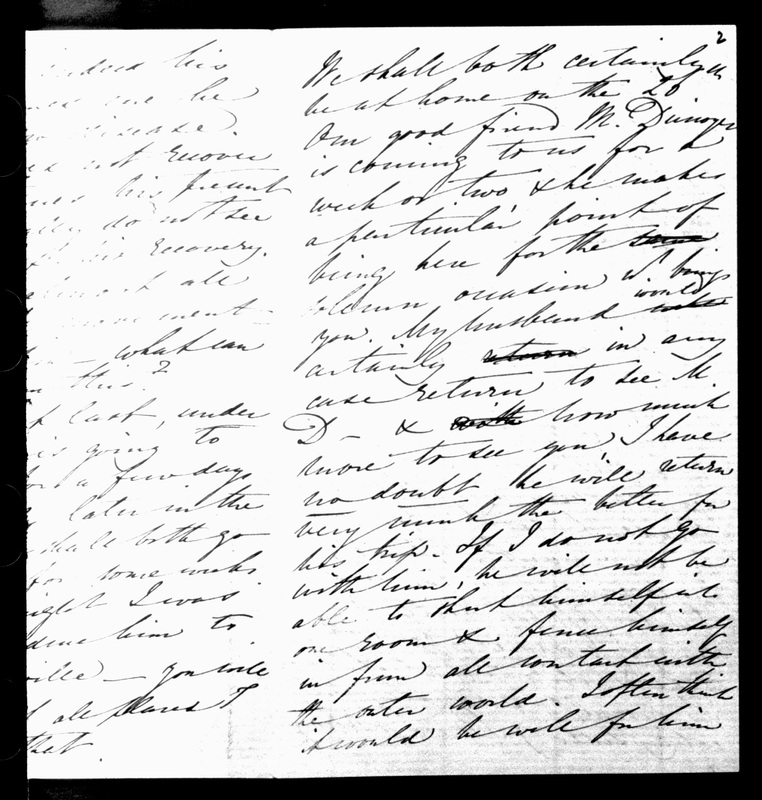 his
he
disease.
not recover
his present
do not see
his recovery.
all
ment -
- what can
this?
last, under
is going to
for a few days
later in the
shall both go
for some weeks
I was
him to
ville — you will
all places I
that.
2
We shall both certainly
be at home on the 28th
Our good friend M.
is coming to us for a
week or two & he makes
a particular point of
being here for the same
solemn occasion wh brings
you. My husband would
certainly return in any
case return to see M.
D - & how much
more to see you, I have
no doubt he will return
very much the better for
his trip - If I do not go
with him, he will not be
able to shut himself into
one room & fence himself
in from all contact with
the outer world. I often think
it would be well for him